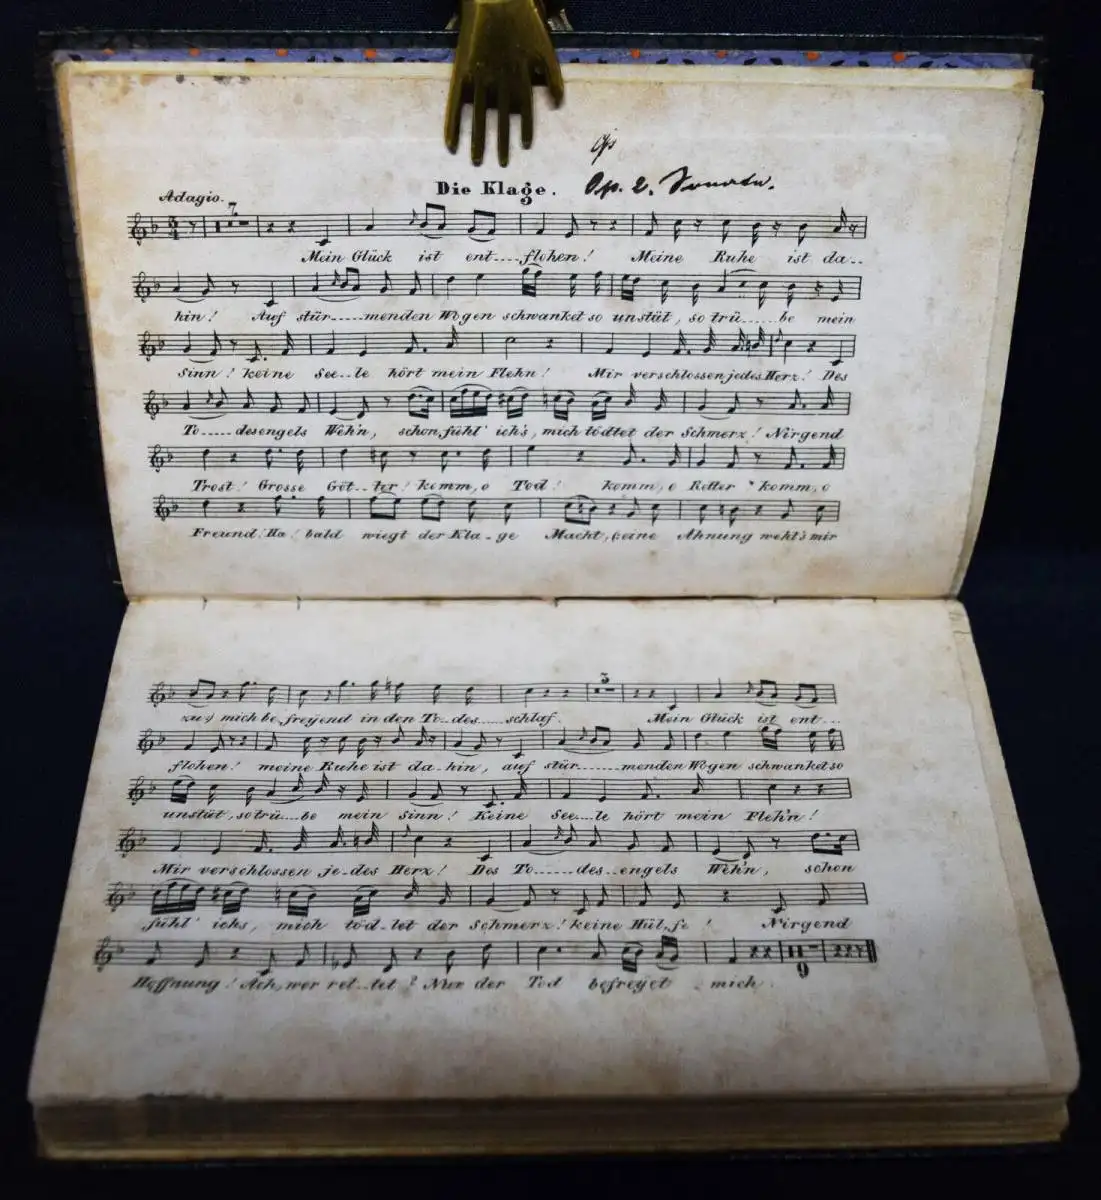 Die Klage. Op. 2. Sonate.
Adagio.
7
Mein Glück ist ent....flohen! Meine Ruhe ist da..
hin! Auf stür....menden Wogen schwanket so unstät, so trü.....be mein
Sinn! keine See...le hört mein Flehn! Mir verschlossen jedes Herz! Des
To.....desengels Weh'n, schon fühl' ich's, mich tödtet der Schmerz! Nirgend
Trost! Grosse Göt..ter! komm, o Tod! komm, o Retter komm, o
Freund! Ha! bald wiegt der Kla_ge Macht, keine Ahnung weht's mir
3
zu, mich be_freyend in den To..des....schlaf. Mein Glück ist ent...
flohen! meine Ruhe ist da_hin, auf stür.....menden Wogen schwanket so
unstät, so trü...be mein Sinn! Keine See...le hört mein Fleh'n!
Mir verschlossen je_des Herz! Des To......des..engels Weh'n, schon
fühl' ichs, mich töd_tet der Schmerz! keine Hül_fe! Nirgend
Hoffnung! Ach, wer ret..tet? Nur der Tod befreyet mich.
9